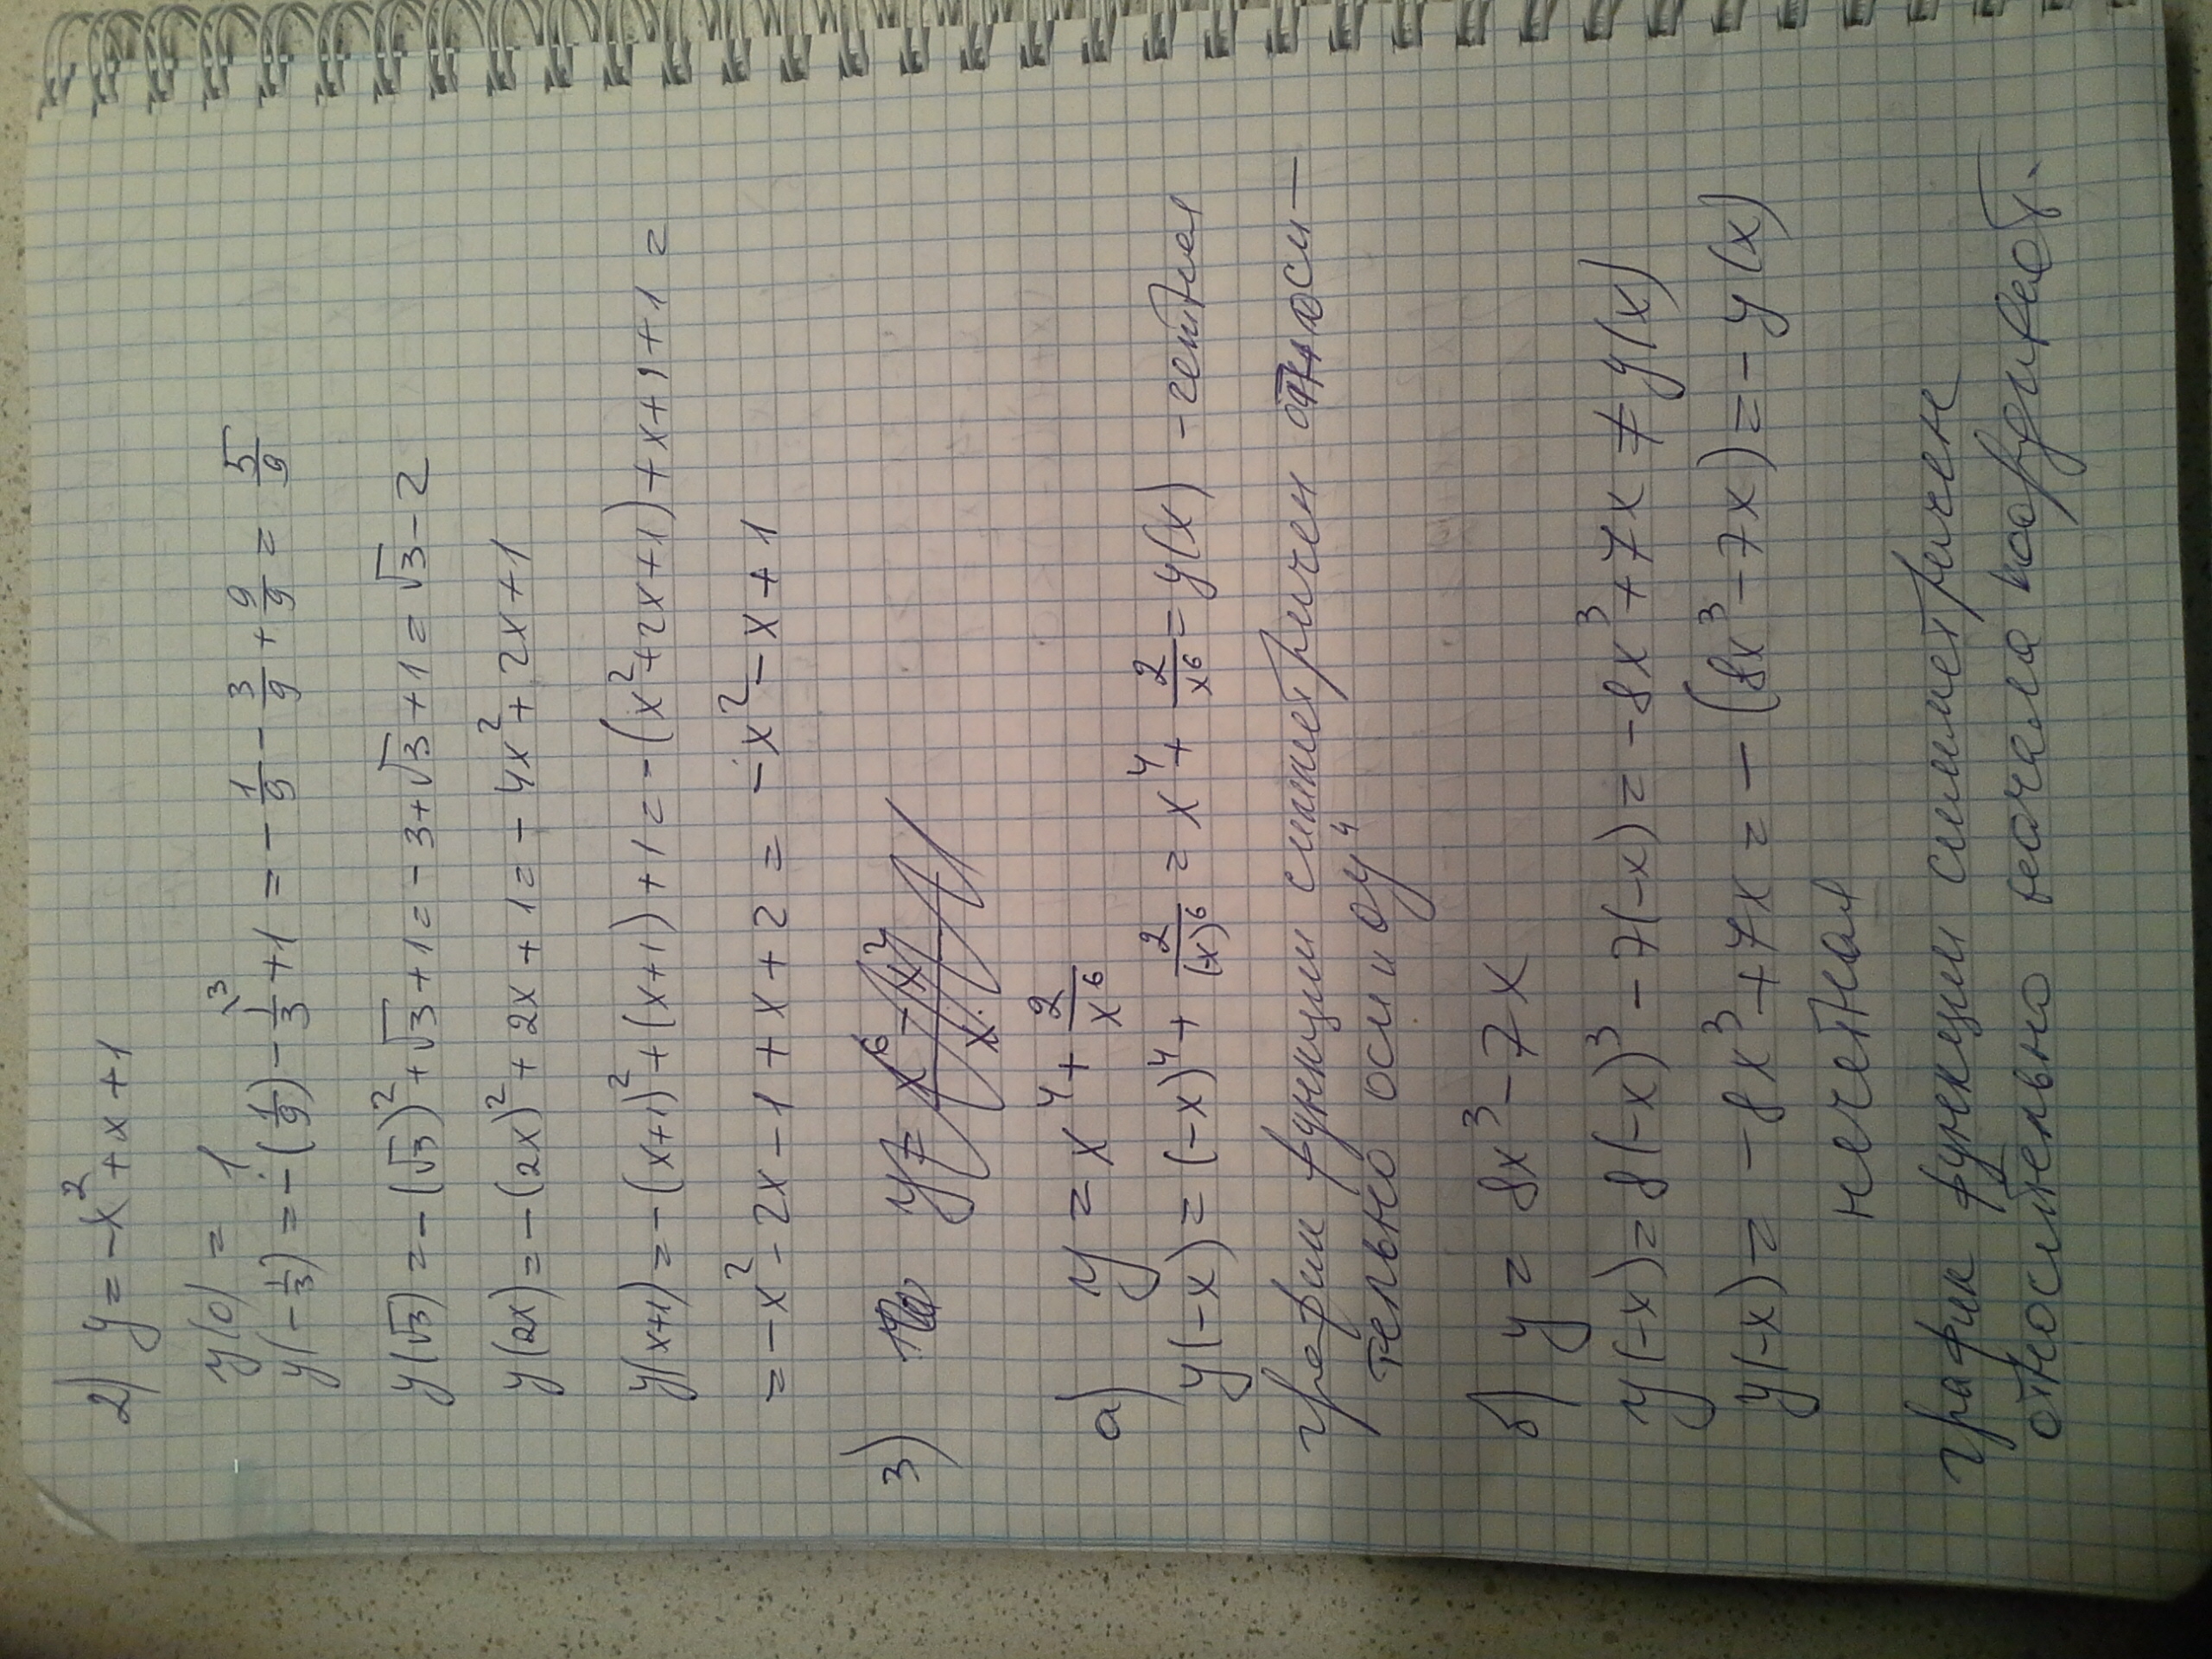 2) y = -x² + x + 1
y(0) = 1
y(-1/3) = -(1/9) - 1/3 + 1 = -1/9 - 3/9 + 9/9 = 5/9
y(√3) = -(√3)² + √3 + 1 = -3 + √3 + 1 = √3 - 2
y(2x) = -(2x)² + 2x + 1 = -4x² + 2x + 1
y(x+1) = -(x+1)² + (x+1) + 1 = -(x² + 2x + 1) + x + 1 + 1 =
= -x² - 2x - 1 + x + 2 = -x² - x + 1
3)
а) y = x⁴ + 2/x⁶
y(-x) = (-x)⁴ + 2/(-x)⁶ = x⁴ + 2/x⁶ = y(x) - четная
график функции симметричен относи-
тельно оси oy
б) y = 8x³ - 7x
y(-x) = 8(-x)³ - 7(-x) = -8x³ + 7x ≠ y(x)
y(-x) = -8x³ + 7x = -(8x³ - 7x) = -y(x)
нечетная
график функции симметричен
относительно начала координат.